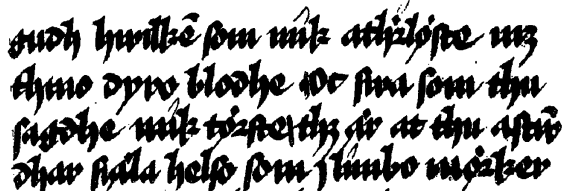 gudh hwilkē som mik athirløste mz
thino dyro blodhe Oc swa som thu
sagdhe mik tørste thz ær at thu astūdhar siæla helso som j limbo mørker